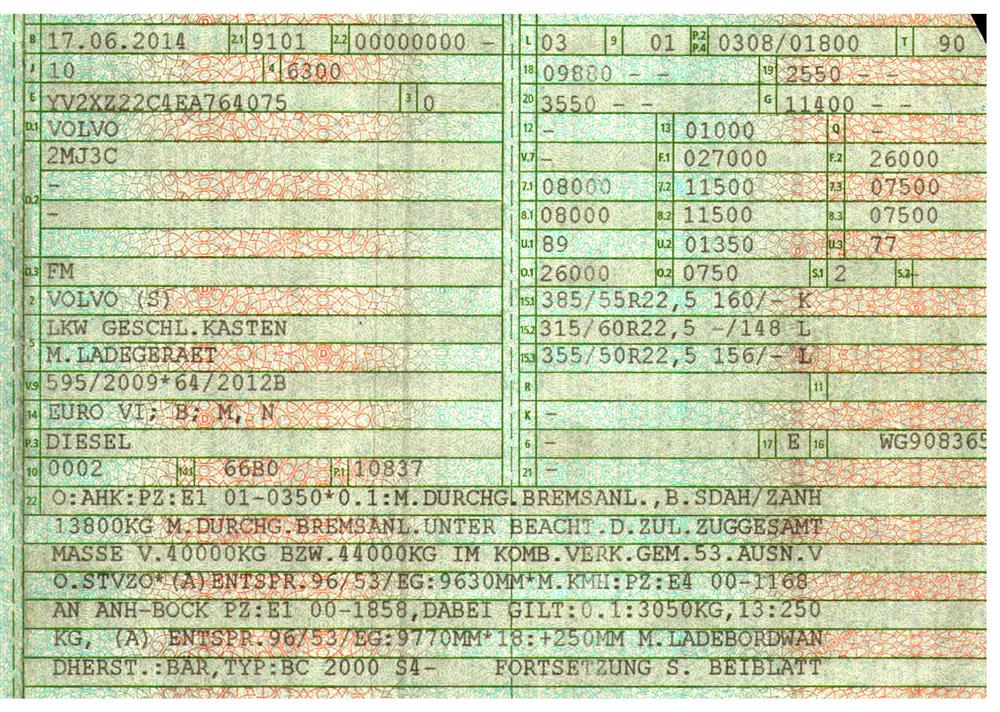 B 17.06.2014 2.1 9101 2.2 00000000 -
J 10 4 6300
E YV2XZ22C4EA764075 3 0
D.1 VOLVO
2MJ3C
D.2 -
-
D.3 FM
2 VOLVO (S)
LKW GESCHL.KASTEN
5 M.LADEGERAET
V.9 595/2009*64/2012B
14 EURO VI; B; M, N
P.3 DIESEL
10 0002 14.1 66B0 P.1 10837
L 03 9 01 P.2 P.4 0308/01800 T 90
18 09880 - - 19 2550 - -
20 3550 - - G 11400 - -
12 - 13 01000 Q -
V.7 - F.1 027000 F.2 26000
7.1 08000 7.2 11500 7.3 07500
8.1 08000 8.2 11500 8.3 07500
U.1 89 U.2 01350 U.3 77
O.1 26000 O.2 0750 S.1 2 S.2 -
15.1 385/55R22,5 160/- K
15.2 315/60R22,5 -/148 L
15.3 355/50R22,5 156/- L
R 11
K -
6 - 17 E 16 WG908365
21 -
22 O:AHK:PZ:E1 01-0350*0.1:M.DURCHG.BREMSANL.,B.SDAH/ZANH
13800KG M.DURCHG.BREMSANL.UNTER BEACHT.D.ZUL.ZUGGESAMT
MASSE V.40000KG BZW.44000KG IM KOMB.VERK.GEM.53.AUSN.V
O.STVZO*(A)ENTSPR.96/53/EG:9630MM*M.KMH:PZ:E4 00-1168
AN ANH-BOCK PZ:E1 00-1858,DABEI GILT:0.1:3050KG,13:250
KG, (A) ENTSPR.96/53/EG:9770MM*18:+250MM M.LADEBORDWAN
DHERST.:BÄR,TYP:BC 2000 S4- FORTSETZUNG S. BEIBLATT